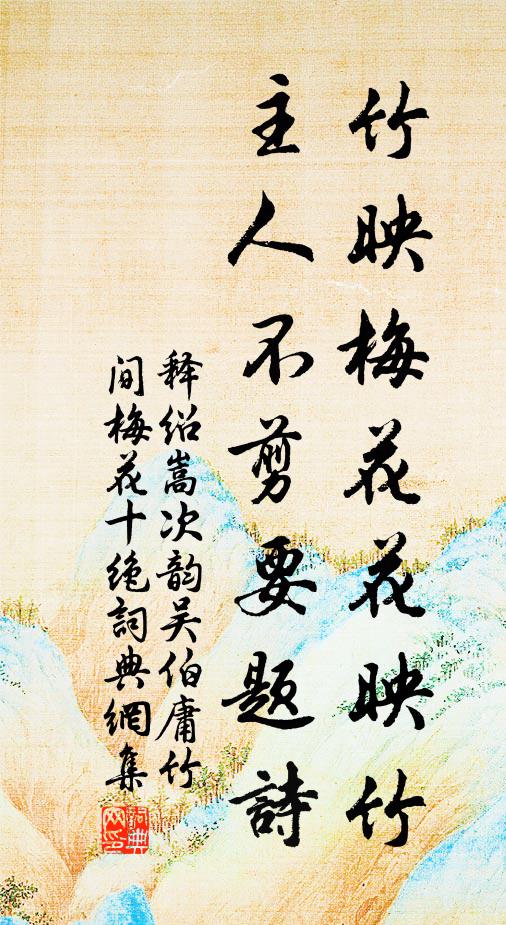 竹映梅花花映竹
主人不剪要题詩
释绍嵩次韵吴伯庸竹
间梅花十绝詞典網集
詞典
网印